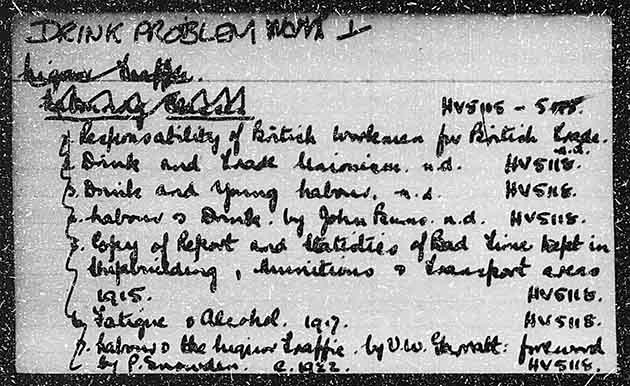 DRINK PROBLEM
Liquor Traffic.
HV5105 -
1. Responsability of British Workmen for British Trade.
n.d.
2. Drink and Trade Unionism. n.d. HV5118.
3. Drink and Young Labour. n.d. HV5118.
4. Labour & Drink. by John Burns. n.d. HV5118.
5. Copy of Report and Statistics of Bad Time kept in
Shipbuilding, Munitions & Transport areas
1915. HV5118.
6. Fatigue & Alcohol. 1917. HV5118.
7. Labour & the Liquor Traffic. by V.W. foreword
by P. Snowden. c.1922. HV5118.